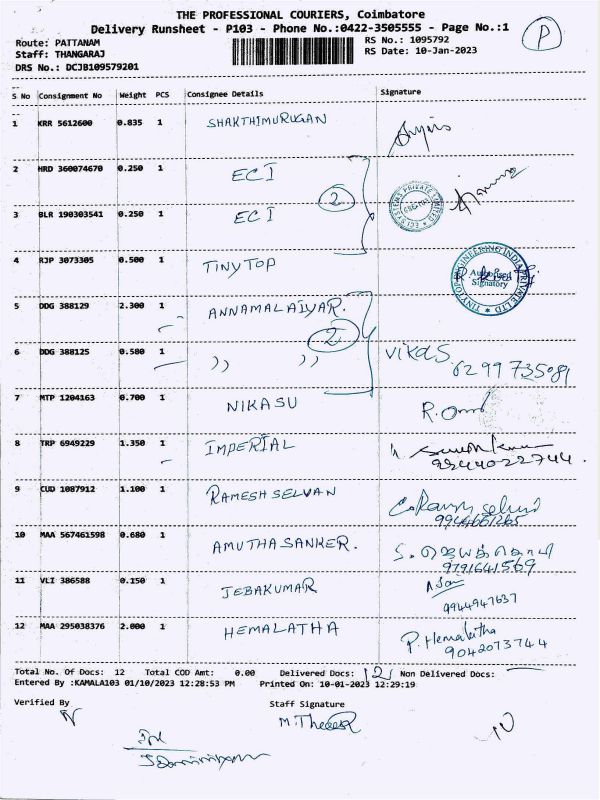 THE PROFESSIONAL COURIERS, Coimbatore
Delivery Runsheet - P103 - Phone No.:0422-3505555 - Page No.:1
P
Route: PATTANAM
RS No.: 1095792
Staff: THANGARAJ
RS Date: 10-Jan-2023
DRS No.: DCJB109579201
S No Consignment No Weight PCS Consignee Details Signature
1 KRR 5612600 0.835 1 SHAKTHIMURUGAN
2 HRD 360074670 0.250 1 ECI
2
3 BLR 190303541 0.250 1 ECI
4 RJP 3073305 0.500 1 TINYTOP
TINY TOP ENGINEERING INDIA PRIVATE LTD
Authorised
Signatory
5 DDG 388129 2.300 1 ANNAMALAIYAR.
2
6 DDG 388125 0.580 1 ,, ,, Vikas
6299735081
7 MTP 1204163 0.700 1 NIKASU R.
8 TRP 6949229 1.350 1 IMPERIAL
9244022744.
9 CUD 1087912 1.100 1 RAMESH SELVAN
9944661265
10 MAA 567461598 0.680 1 AMUTHASANKER.
9791641569
11 VLI 386588 0.150 1 JEBAKUMAR
9944947637
12 MAA 295038376 2.000 1 HEMALATHA P. Hemalatha
9042073744
Total No. Of Docs: 12 Total COD Amt: 0.00 Delivered Docs: 12 Non Delivered Docs:
Entered By :KAMALA103 01/10/2023 12:28:53 PM Printed On: 10-01-2023 12:29:19
Verified By Staff Signature